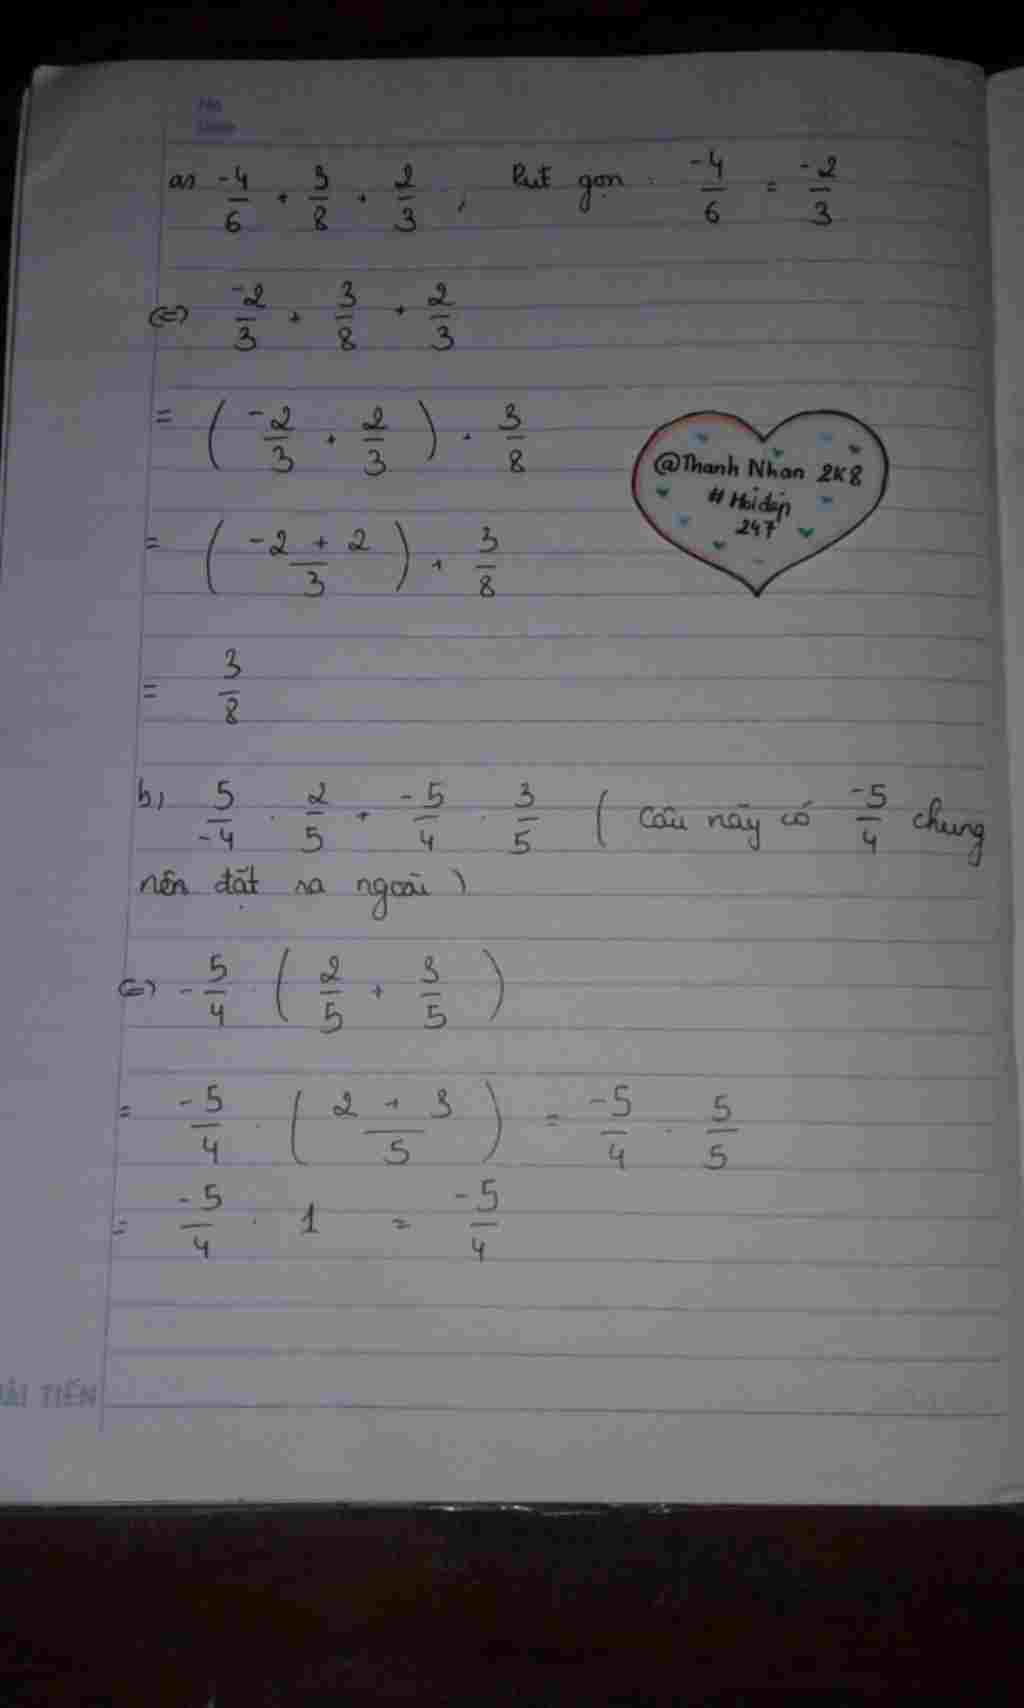 No
Date
a) -4/6 + 3/8 + 2/3 , Rut gọn . -4/6 = -2/3
<=> -2/3 + 3/8 + 2/3
= ( -2/3 + 2/3 ) + 3/8
@Thanh Nhan 2K8
# Hoidap
247
= ( (-2 + 2)/3 ) + 3/8
= 3/8
b) 5/-4 . 2/5 + -5/4 . 3/5 ( Câu này có -5/4 chung
nên đặt ra ngoài )
<=> -5/4 . ( 2/5 + 3/5 )
= -5/4 . ( (2 + 3)/5 ) = -5/4 . 5/5
= -5/4 . 1 = -5/4
ẢI TIẾN